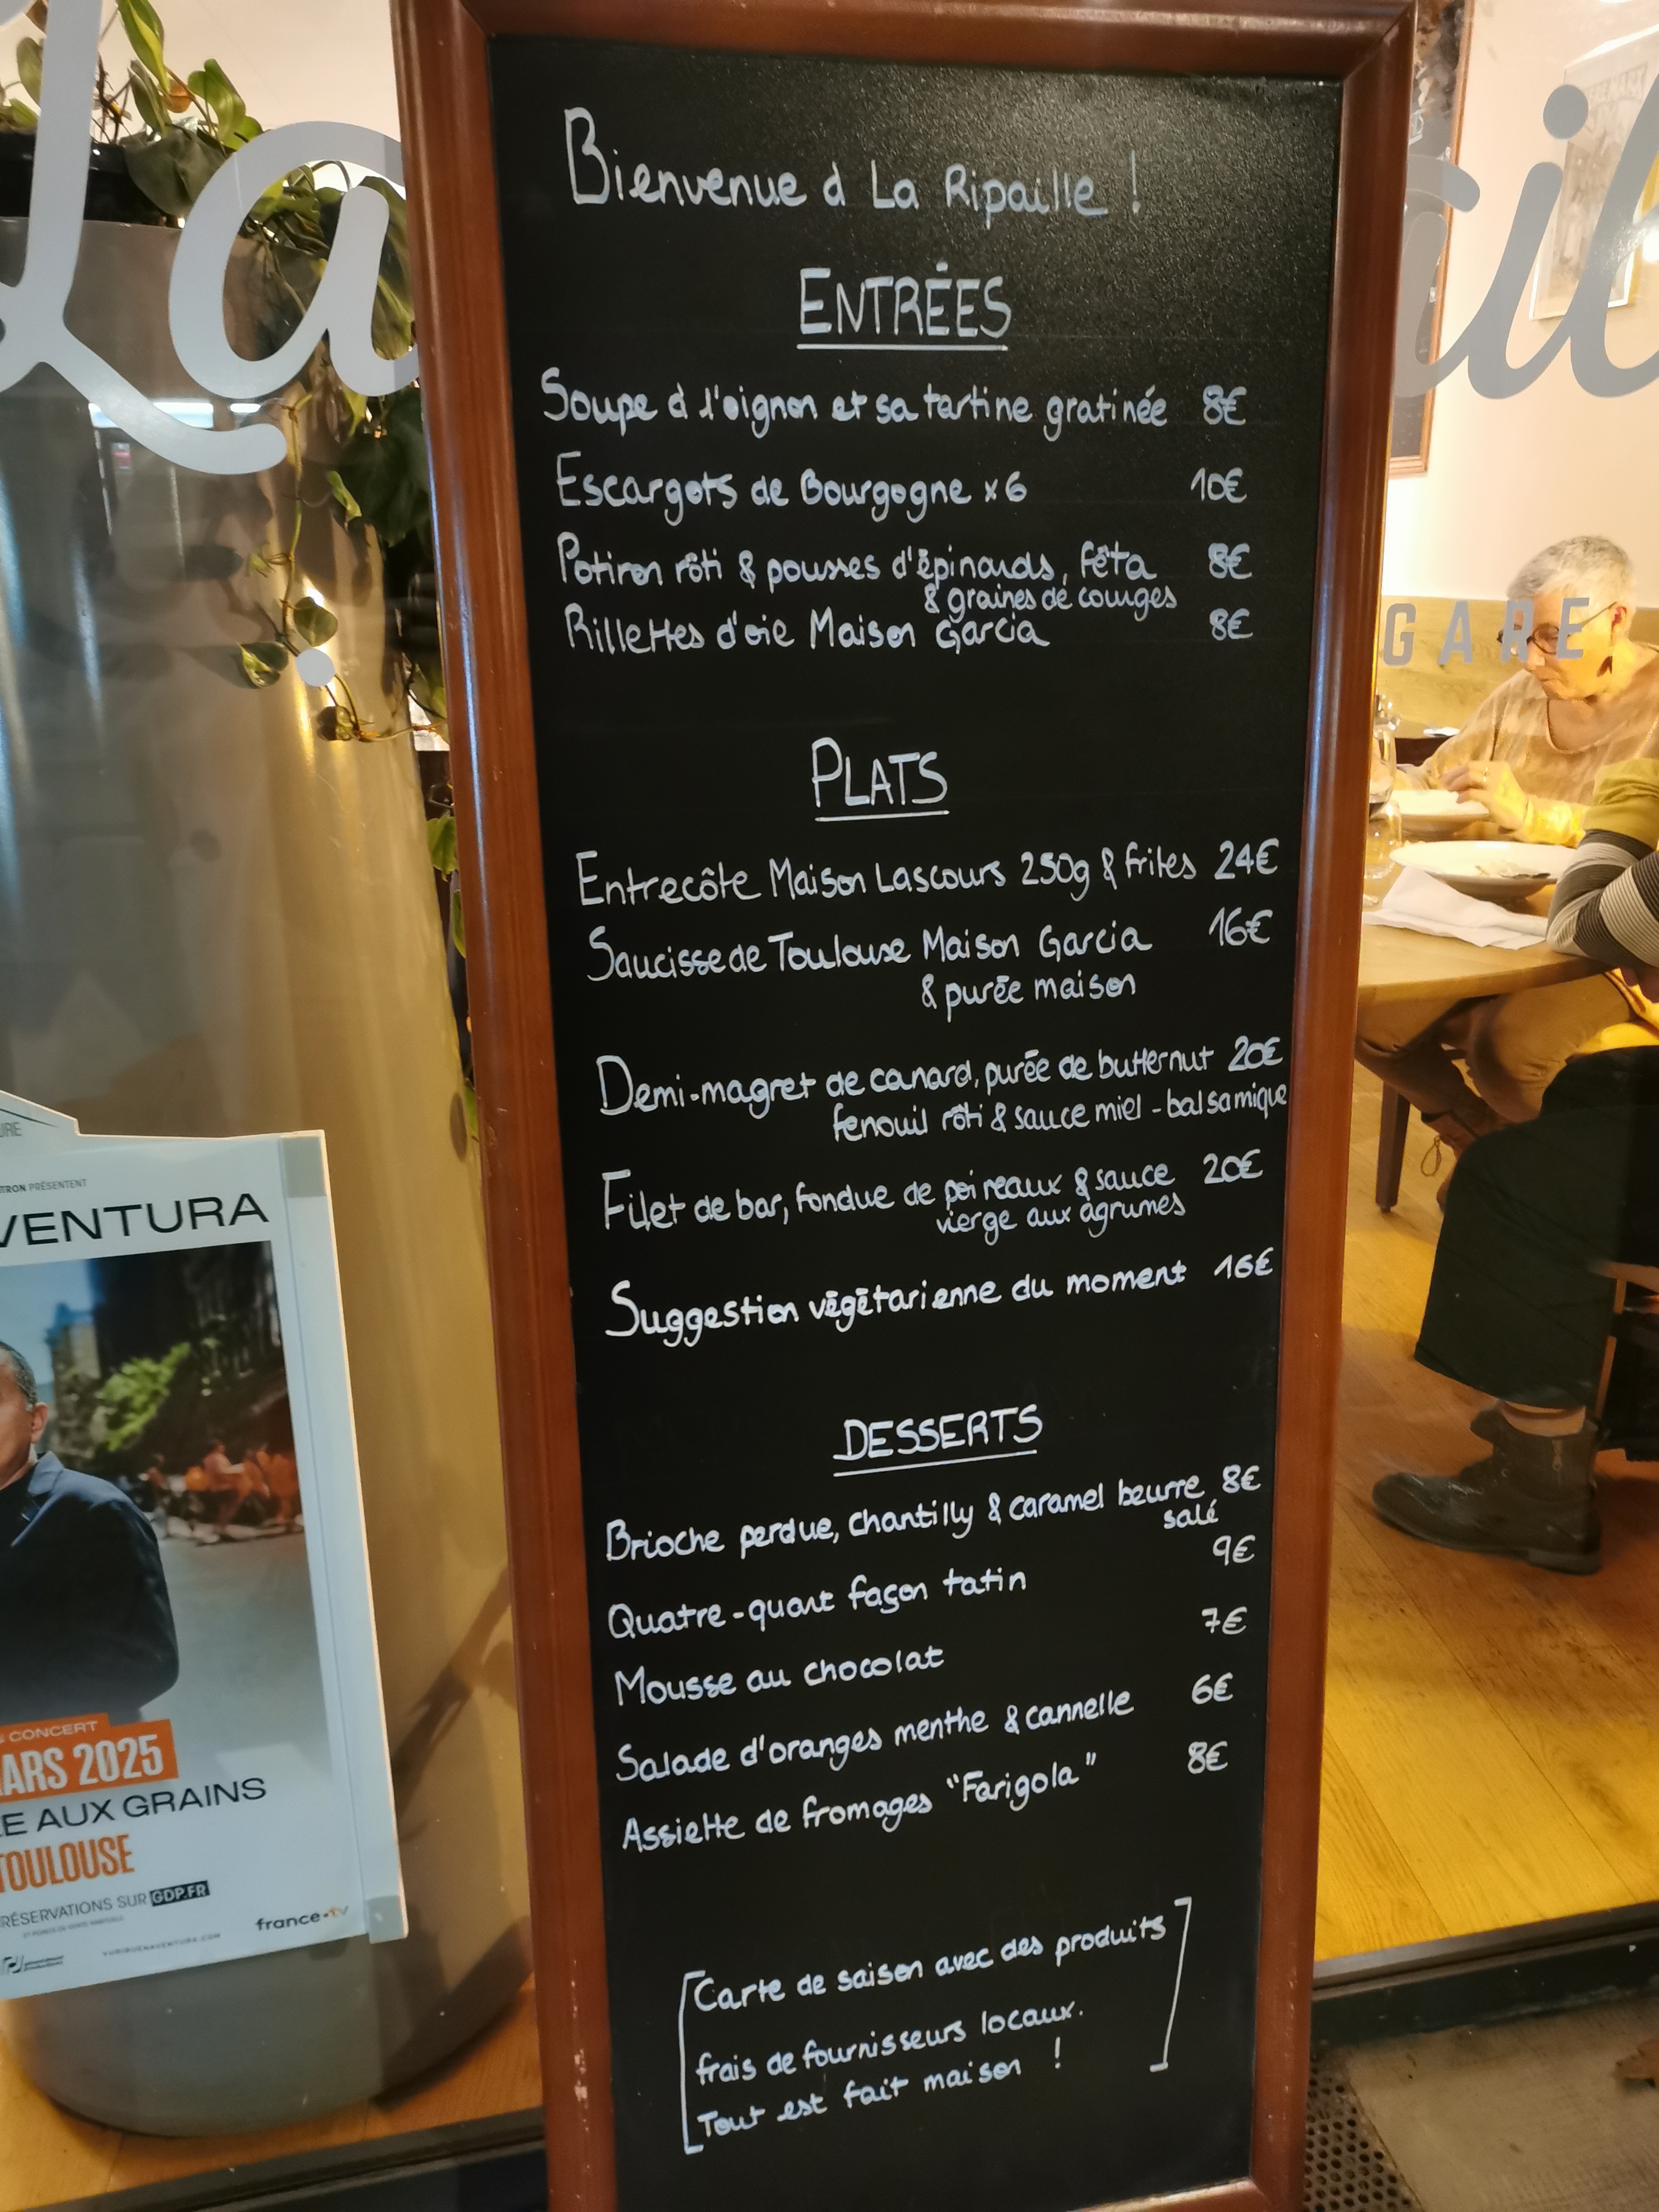 La
Bienvenue à La Ripaille !
ENTRÉES
Soupe à l'oignon et sa tartine gratinée 8€
Escargots de Bourgogne x6 10€
Potiron rôti & pousses d'épinards, fêta 8€
& graines de courges
Rillettes d'oie Maison Garcia 8€
PLATS
Entrecôte Maison Lascours 250g & frites 24€
Saucisse de Toulouse Maison Garcia 16€
& purée maison
Demi-magret de canard, purée de butternut 20€
fenouil rôti & sauce miel - balsamique
Filet de bar, fondue de poireaux & sauce 20€
vierge aux agrumes
Suggestion végétarienne du moment 16€
DESSERTS
Brioche perdue, chantilly & caramel beurre 8€
salé
Quatre-quart façon tatin 9€
Mousse au chocolat 7€
Salade d'oranges menthe & cannelle 6€
Assiette de fromages "Farigola" 8€
[Carte de saison avec des produits
frais de fournisseurs locaux.
Tout est fait maison !]
GARE
PRÉSENTENT
VENTURA
CONCERT
ARS 2025
E AUX GRAINS
TOULOUSE
RÉSERVATIONS SUR GDP.FR
france.tv